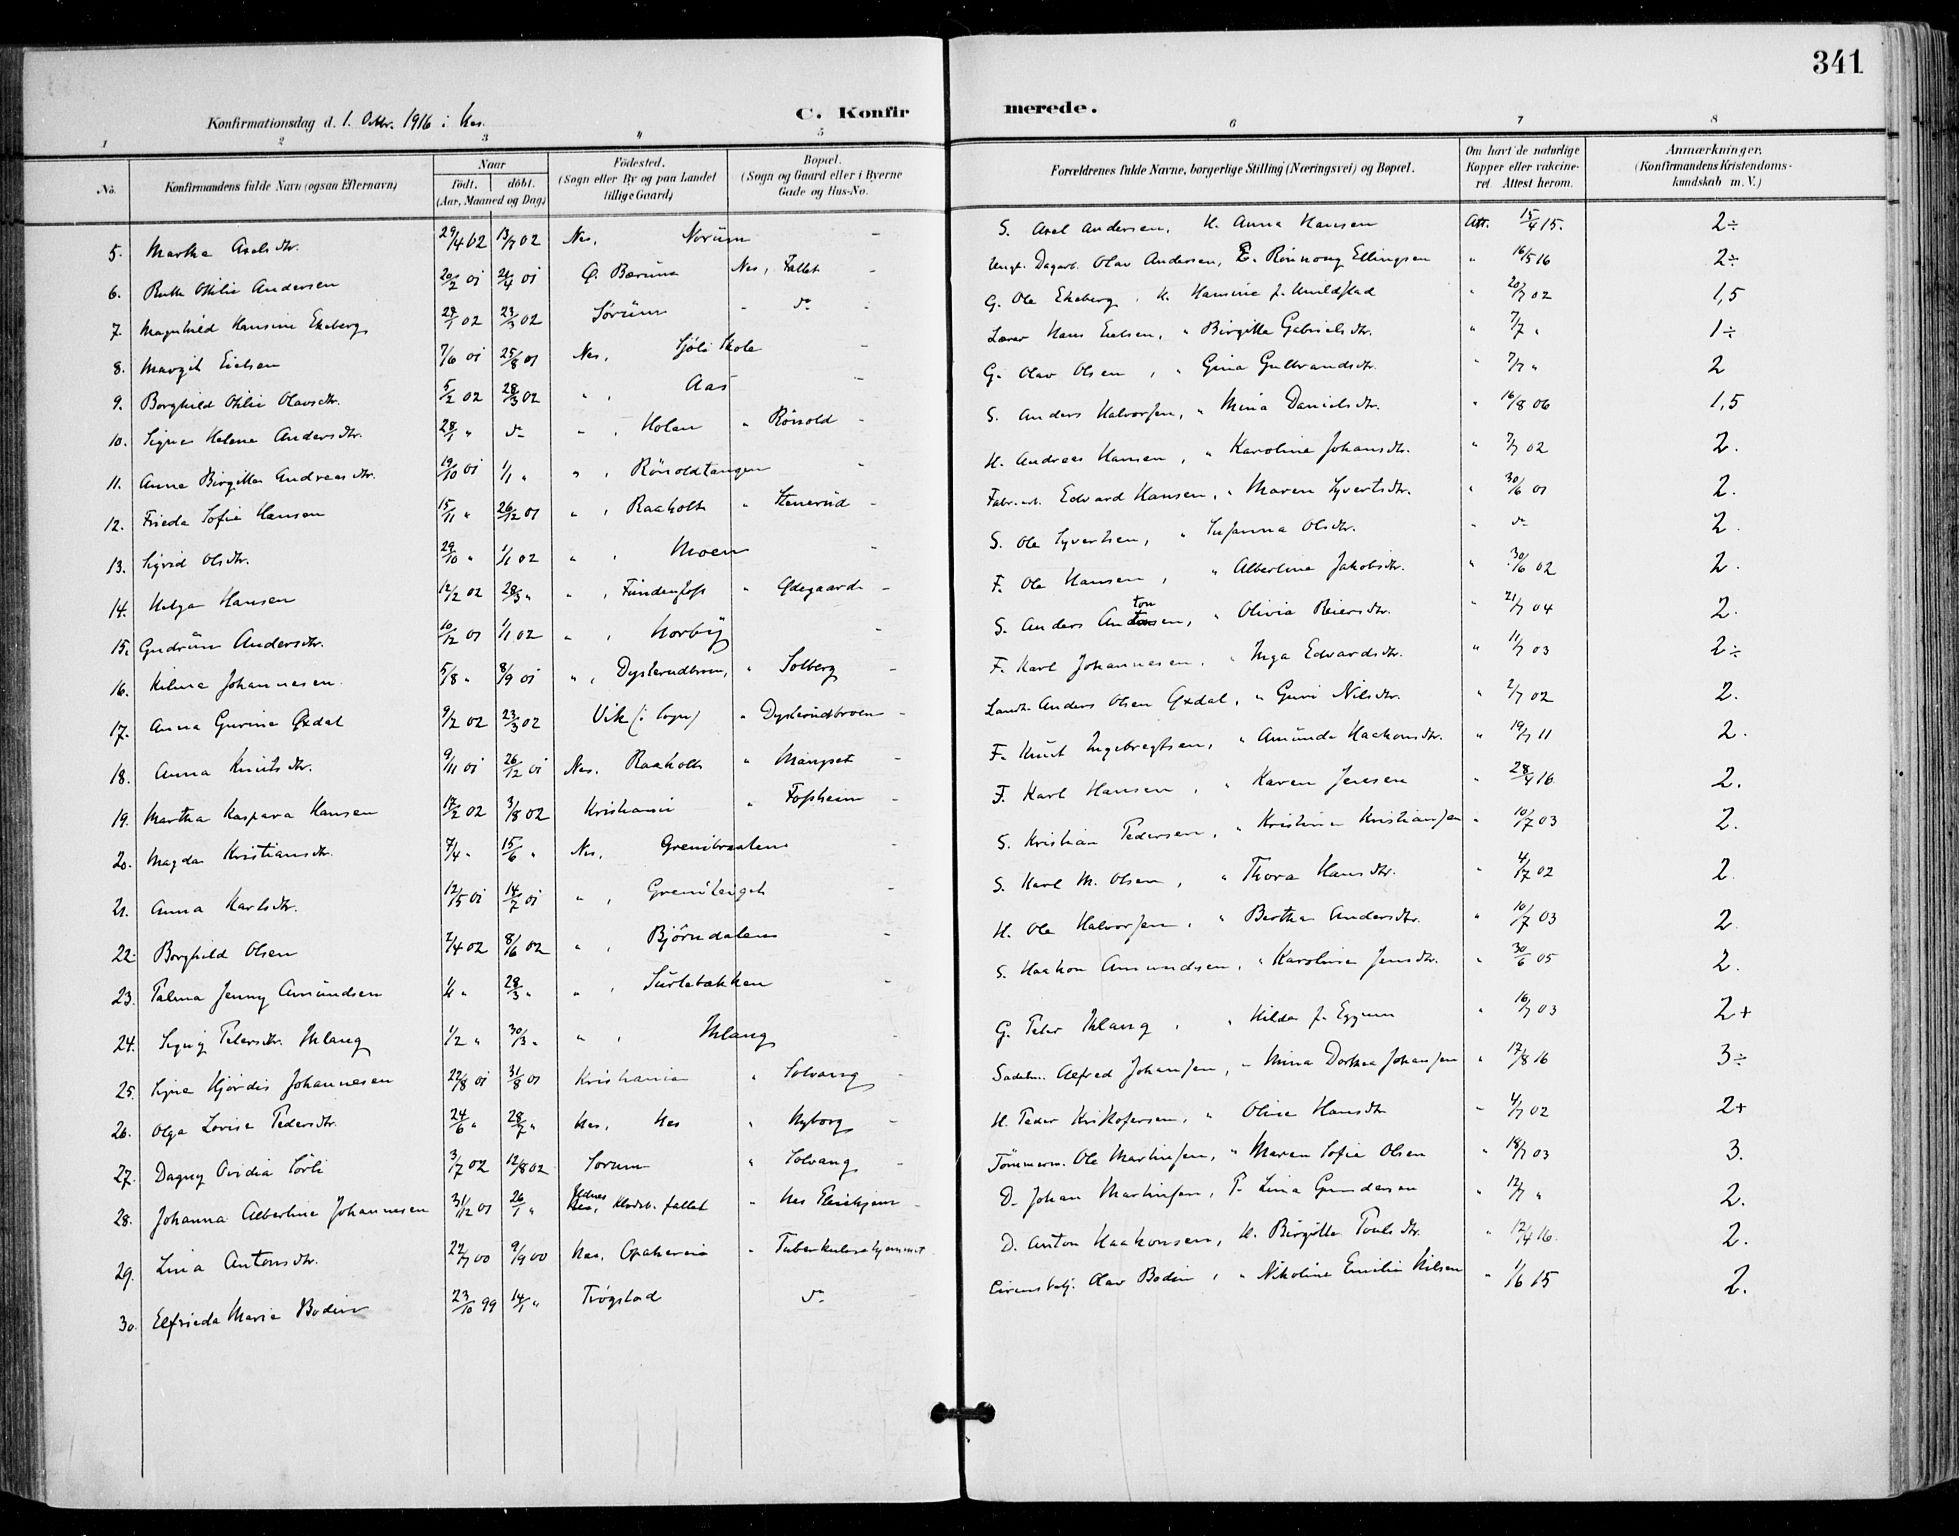 341
Konfirmationsdag d. 1. Oktbr. 1916 i Nes.
C. Konfirmerede.
1 2 3 4 5 6 7 8
No. Konfirmandens fulde Navn (ogsaa Efternavn) Naar födt. döbt. (Aar, Maaned og Dag) Födested. (Sogn eller By og paa Landet tillige Gaard) Bopæl. (Sogn og Gaard eller i Byerne Gade og Hus-No. Forældrenes fulde Navne, borgerlige Stilling (Næringsvei) og Bopæl. Om havt de naturlige Kopper eller vakcineret. Attest herom. Anmærkninger. (Konfirmandens Kristendomskundskab m. V.)
5. Martha Axelsdtr. 29/4 02 13/7 02 Nes, Norum - S. Axel Andersen, H. Anna Hansen Att. 15/4 15. 2÷
6. Ruth Otilie Andersen 20/2 01 21/4 01 Ø. Bærum Nes, Fallet - Ungk. Dagarb. Olav Andersen, E. Rönnoug Ellingsen " 16/5 16 2÷
7. Magnhild Hansine Ekeberg 24/1 02 23/3 02 Sørum - do - G. Ole Ekeberg, H. Hansine f. Huldstad " 20/7 02 1,5
8. Margit Eielsen 7/6 01 25/8 01 Nes, Sjöli Skole - Lærer Hans Eielsen, " Birgitte Gabrielsdtr. " 7/7 " 1÷
9. Borghild Otilie Olavsdtr. 5/2 02 28/3 02 " , Aas - G. Olav Olsen, " Gina Gulbrandsdtr. " 7/7 " 2
10. Signe Helene Andersdtr. 28/1 " do " , Holen " Rönold - S. Anders Halvorsen, " Mina Danielsdtr. " 16/8 06 1,5
11. Anne Birgitte Andreasdtr. 19/10 01 1/1 " " , Rönoldtangen - H. Andreas Hansen, " Karoline Johansdtr. " 7/7 02 2.
12. Frieda Sofie Hansen 15/11 " 26/12 01 " , Raaholt " Stenerud - Fabr.arb. Edvard Hansen, " Maren Syvertsdtr. " 30/6 01 2.
13. Sigrid Olsdtr. 29/10 " 1/1 02 " , Moen - S. Ole Syvertsen, " Susanna Olsdtr. " do 2.
14. Helga Hansen 12/2 02 28/3 " " , Fundenfoss " Ødegaard - F. Ole Hansen, " Albertine Jakobsdtr. " 30/6 02 2.
15. Gudrun Andersdtr. 10/12 01 1/1 02 " , Horby - S. Anders Antonsen, " Olivia Reiersdtr. " 21/7 04 2.
16. Hilma Johannesen. 5/8 " 8/9 01 " , Dysterudbroen, " Solberg - F. Karl Johannesen. " Inga Edvardsdtr. " 11/7 03 2÷
17. Anna Gurine Øxdal 9/2 02 23/3 02 Vik (i Sogn) " Dysterudbroen - Landh. Anders Olsen Øxdal, " Guri Nilsdtr. " 2/7 02 2.
18. Anna Knutsdtr. 9/11 01 26/12 01 Nes. Raaholt " Mangset - F. Knut Ingebregtsen, " Amunda Haakonsdtr. " 19/7 11 2.
19. Martha Kaspara Hansen 17/2 02 3/8 02 Kristiania " Fossheim - F. Karl Hansen, " Karen Jensen " 28/4 16 2.
20. Magda Kristiansdtr. 7/4 " 15/6 " Nes, Grenibraaten S. Kristian Pedersen, " Kristine Kristiansen " 10/7 03 2.
21. Anna Karlsdtr. 12/5 01 14/7 01 " , Grenileiget - S. Karl M. Olsen, " Thora Hansdtr. " 4/7 02 2.
22. Borghild Olsen 2/4 02 8/6 02 " , Björndalen - H. Ole Halvorsen, " Berthe Andersdtr. " 10/7 03 2.
23. Palma Jenny Amundsen 1/1 " 28/3 " " , Surlebakken - S. Haakon Amundsen, " Karoline Jensdtr. " 30/6 05 2.
24. Signy Petersdtr. Uvlang 1/2 " 30/3 " " , Uvlang - G. Peter Uvlang, " Hilda f. Eggum " 16/7 03 2+
25. Signe Hjördis Johannesen 22/8 01 31/8 01 Kristiania " Solvang - Sadelm. Alfred Johansen, " Mina Dorthea Johansen " 17/8 16 3÷
26. Olga Lovise Pedersdtr. 24/6 " 28/7 " Nes, Nes " Nyborg - H. Peder Kristofersen, " Oline Hansdtr " 4/7 02 2+
27. Dagny Ovidia Sörli 3/7 02 12/8 02 Sorum " Solvang - Tömmerm. Ole Martinsen, " Maren Sofie Olsen " 18/7 03 3.
28. Johanna Albertine Johannesen 31/12 01 26/1 " Udnes Nes, fallet " Nes Pleiehjem - D. Johan Martinsen, P. Lina Gundersen " 12/7 " 2.
29. Lina Antonsdtr. 22/7 00 9/9 00 Nes. Opakereie " Tuberkulosehjemmet D. Anton Haakonsen, H. Birgitte Poulsdtr. " 12/4 16. 2.
30. Elfrieda Marie Bodin 23/10 99 14/1 " Trögstad do - Cirkusbetj. Olav Bodin, " Nikoline Emilie Nilsen " 1/6 15 2.